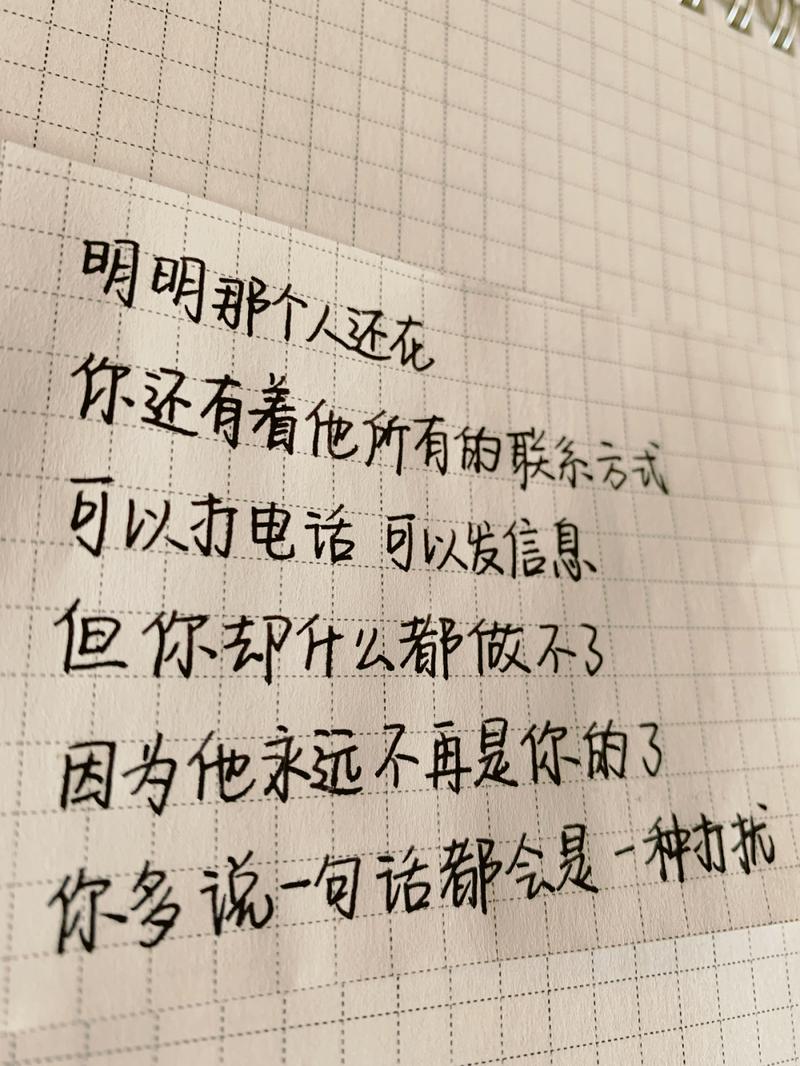 明明那个人还在
你还有着他所有的联系方式
可以打电话 可以发信息
但你却什么都做不了
因为他永远不再是你的了
你多说一句话都会是一种打扰